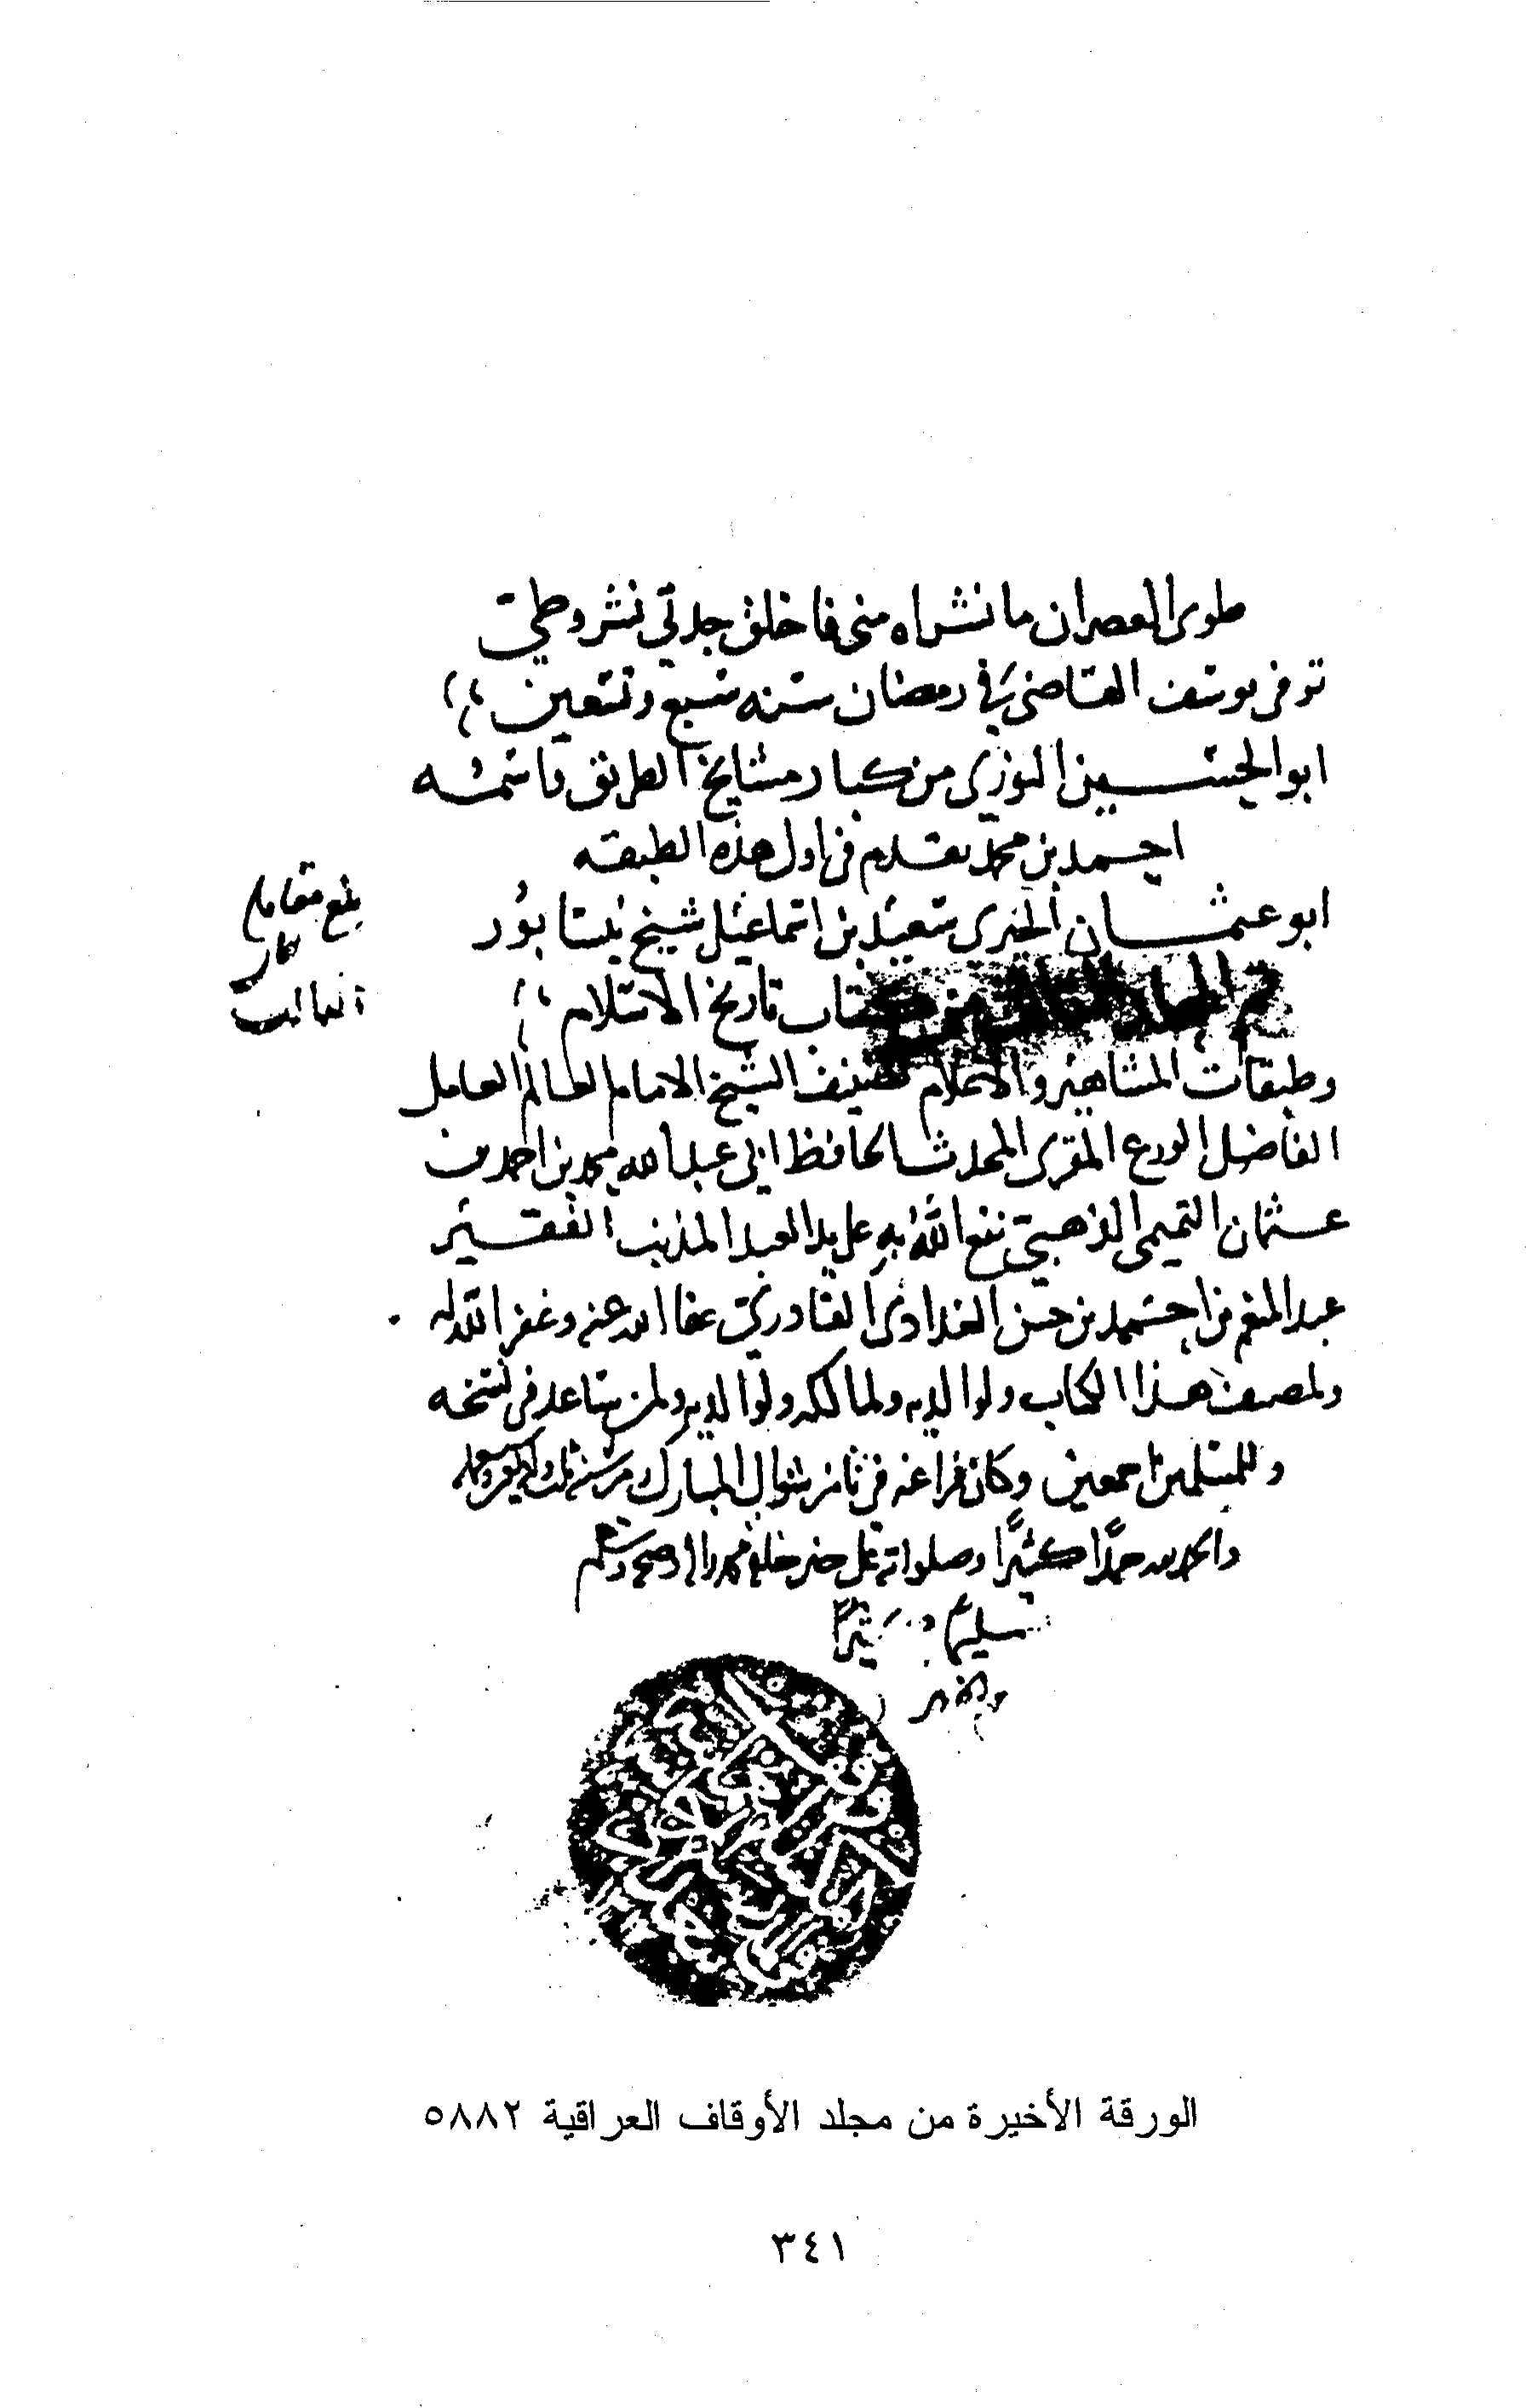 طوى العصران ما نشراه منى فاخلق جدتي نشر وطي
توفى يوسف القاضي في رمضان سنه سبع وتسعين
ابو الحسين النوري من كبار مشايخ الطريق واسمه
احمد بن محمد تقدم في اول هذه الطبقه
ابو عثمان الحيري سعيد بن اسماعيل شيخ نيسابور
تم المجلد من كتاب تاريخ الاسلام
وطبقات المشاهير والاعلام تصنيف الشيخ الامام العالم العامل
الفاضل الورع المقرى المحدث الحافظ ابي عبد الله محمد بن احمد بن
عثمان التميمى الذهبي نفع الله به على يد العبد المذنب الفقير
عبد المنعم بن احمد بن حسن البغدادى القادري عفا الله عنه وغفر الله له
ولمصنف هذا الكتاب ولوالديه ولمالكه ولوالديه ولمن ساعد في نسخه
وللمسلمين اجمعين وكان فراغه في ثامن شوال المبارك من سنة
والحمد لله حمدا كثيرا وصلواته على خير خلقه محمد واله وصحبه وسلم
تسليما كثيرا
بلغ مقابله
الورقة الأخيرة من مجلد الأوقاف العراقية ٥٨٨٢
٣٤١